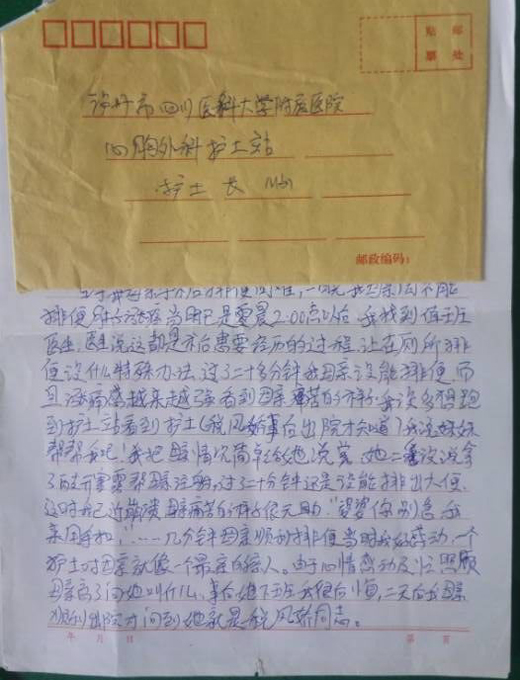 贴 邮
票 处
泸州市四川医科大学附属医院
心胸外科护士站
护士长
邮政编码:
排便 当时已是凌晨2.00点以后 我找到值班
医生, 医生说这都是术后需要经历的过程, 让在厕所排
便没什么特殊办法, 过了二十多分钟我母亲没能排便, 而
且涨痛越来越强看到母亲痛苦的样子我该多跑
到护士站看到护士(税风娇事白出院才知道)我说妹妹
帮帮我吧!我把 情况简单给她说完 她二话没说拿
了 需要帮 过了二十分钟还是没能排出大便
这时 母亲痛苦的样子很无助. "婆婆你别急 我
来用手抠, …… 几分钟母亲顺利排便当时我好感动, 一个
护士对母亲就像一个最亲的亲人。由于心情感动及忙照顾
母亲忘了问她叫什么, 事后她下班我很后悔, 二天后我母亲
顺利出院才问到她就是税风娇同志。
年 月 日 第 页